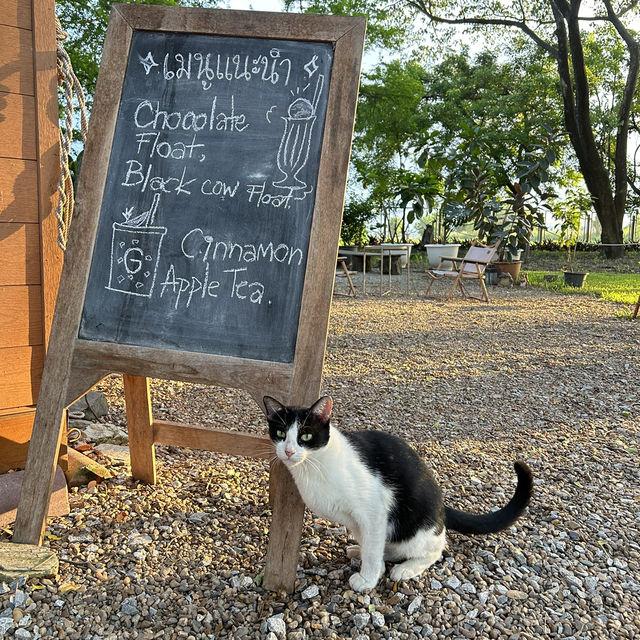 เมนูแนะนำ
Chocolate
Float,
Black cow Float.
Cinnamon
Apple Tea.
G